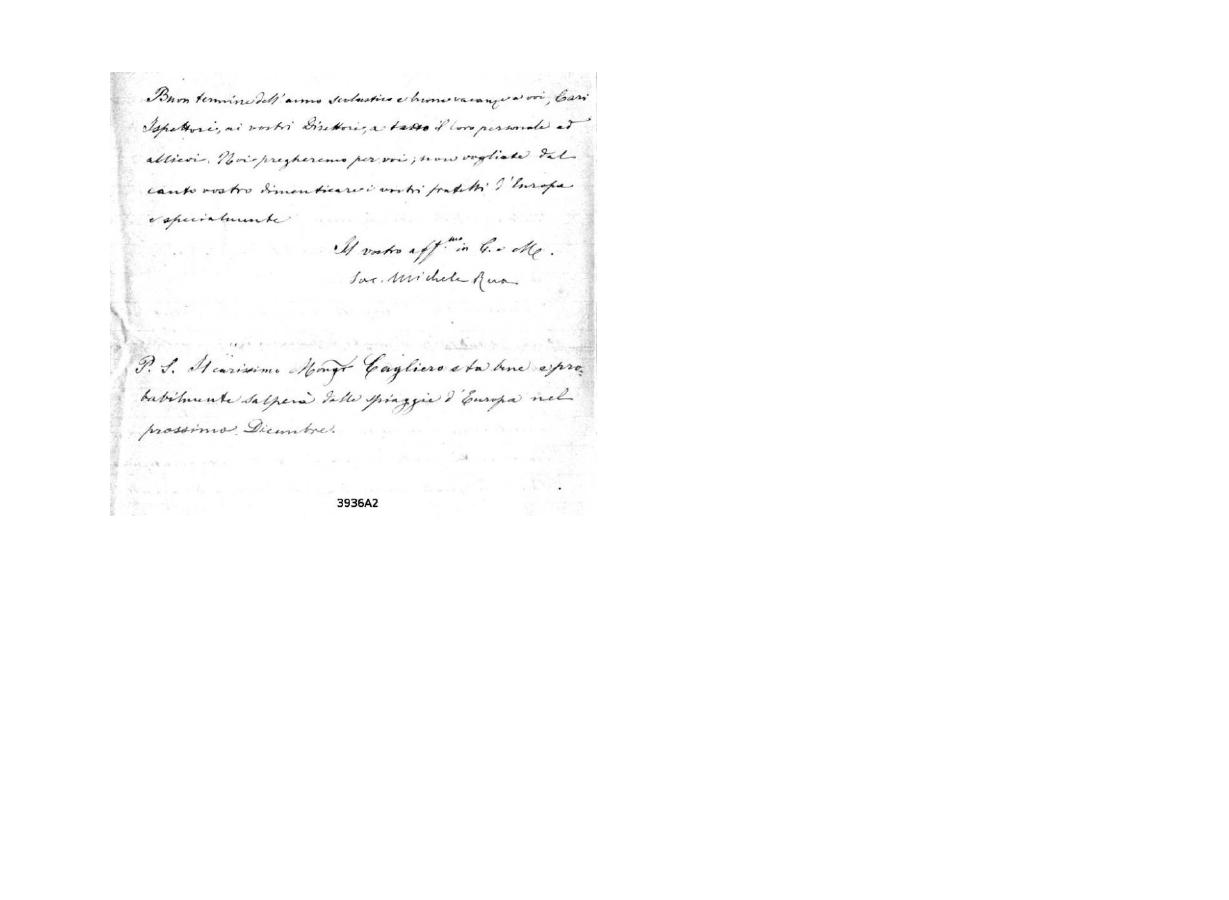 Buon termine dell'anno scolastico e buone vacanze a voi, Cari
Ispettori, ai vostri Direttori, a tutto il loro personale ed
allievi. Noi pregheremo per voi; non vogliate dal
canto vostro dimenticare i vostri fratelli d'Europa
e specialmente
Il vostro aff.mo in G. e M.
Sac. Michele Rua
P. S. Il carissimo Monsr Cagliero sta bene e pro-
babilmente salperà dalle spiaggie d'Europa nel
prossimo Dicembre.
3936A2